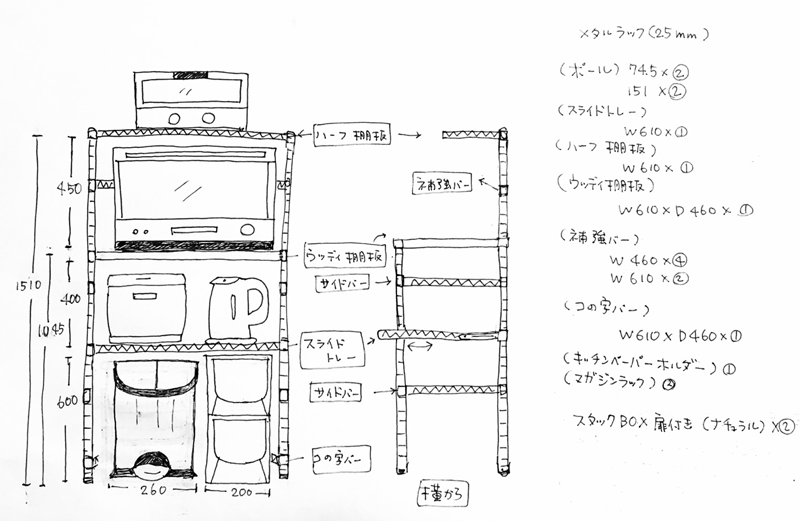 メタルラック(25mm)
(ポール) 74.5×②
151 ×②
(スライドトレー)
W610×①
(ハーフ棚板)
W610×①
(ウッディ棚板)
W610×D460×①
(補強バー)
W460×④
W610×②
(コの字バー)
W610×D460×①
(キッチンペーパーホルダー)①
(マガジンラック)②
スタックBOX扉付き(ナチュラル)×②
ハーフ棚板
補強バー
ウッディ棚板
サイドバー
スライド
トレー
サイドバー
コの字バー
横から
450
400
600
1510
1045
260
200